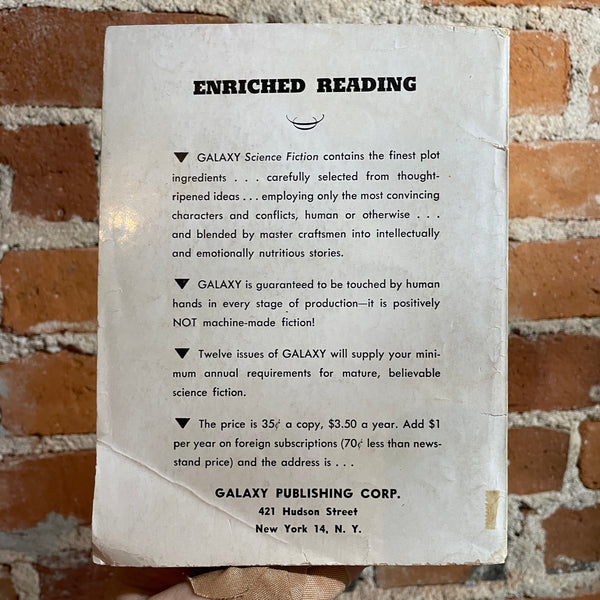 ENRICHED READING
▼ GALAXY Science Fiction contains the finest plot
ingredients . . . carefully selected from thought-
ripened ideas . . . employing only the most convincing
characters and conflicts, human or otherwise . . .
and blended by master craftsmen into intellectually
and emotionally nutritious stories.
▼ GALAXY is guaranteed to be touched by human
hands in every stage of production—it is positively
NOT machine-made fiction!
▼ Twelve issues of GALAXY will supply your mini-
mum annual requirements for mature, believable
science fiction.
▼ The price is 35¢ a copy, $3.50 a year. Add $1
per year on foreign subscriptions (70¢ less than news-
stand price) and the address is . . .
GALAXY PUBLISHING CORP.
421 Hudson Street
New York 14, N. Y.